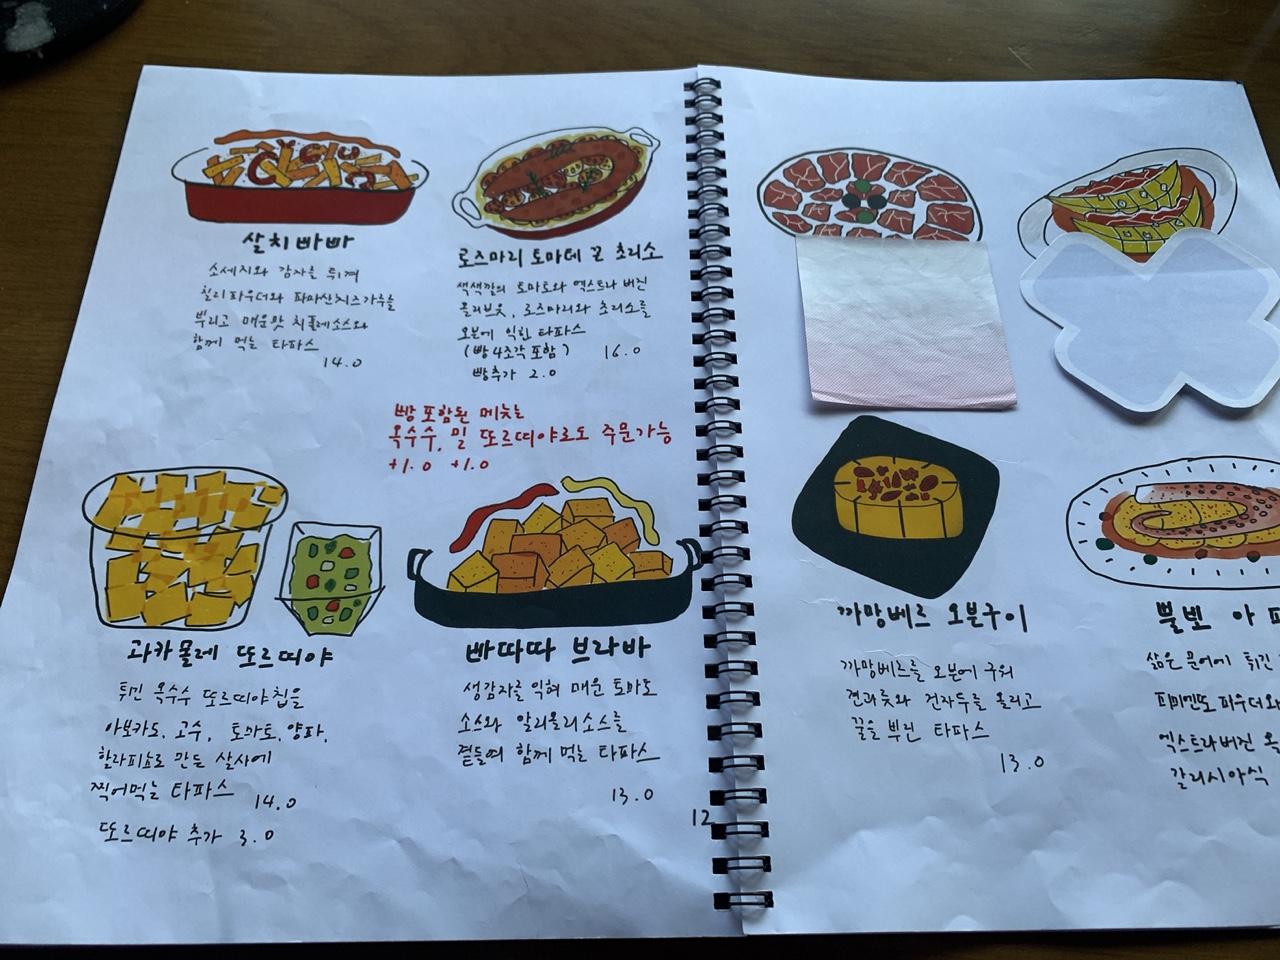 살치빠빠
소세지와 감자를 튀겨
칠리파우더와 파마산치즈가루를
뿌리고 매운맛 치폴레소스와
함께 먹는 타파스
14.0
로즈마리 토마테 꼰 초리소
색색깔의 토마토와 엑스트라 버진
올리브오일, 로즈마리와 초리소를
오븐에 익힌 타파스
(빵 4조각 포함) 16.0
빵추가 2.0
빵 포함된 메뉴는
옥수수, 밀 또르띠야로도 주문가능
+1.0 +1.0
과카몰레 또르띠야
튀긴 옥수수 또르띠야칩을
아보카도, 고수, 토마토, 양파,
할라피뇨로 만든 살사에
찍어먹는 타파스 14.0
또르띠야 추가 3.0
빠따따 브라바
생감자를 익혀 매운 토마토
소스와 알리올리소스를
곁들여 함께 먹는 타파스
13.0
12
까망베르 오븐구이
까망베르를 오븐에 구워
견과류와 건자두를 올리고
꿀을 뿌린 타파스
13.0
뽈뽀 아
삶은 문어에 튀긴
피미엔또 파우더와
엑스트라버진 올
갈리시아식